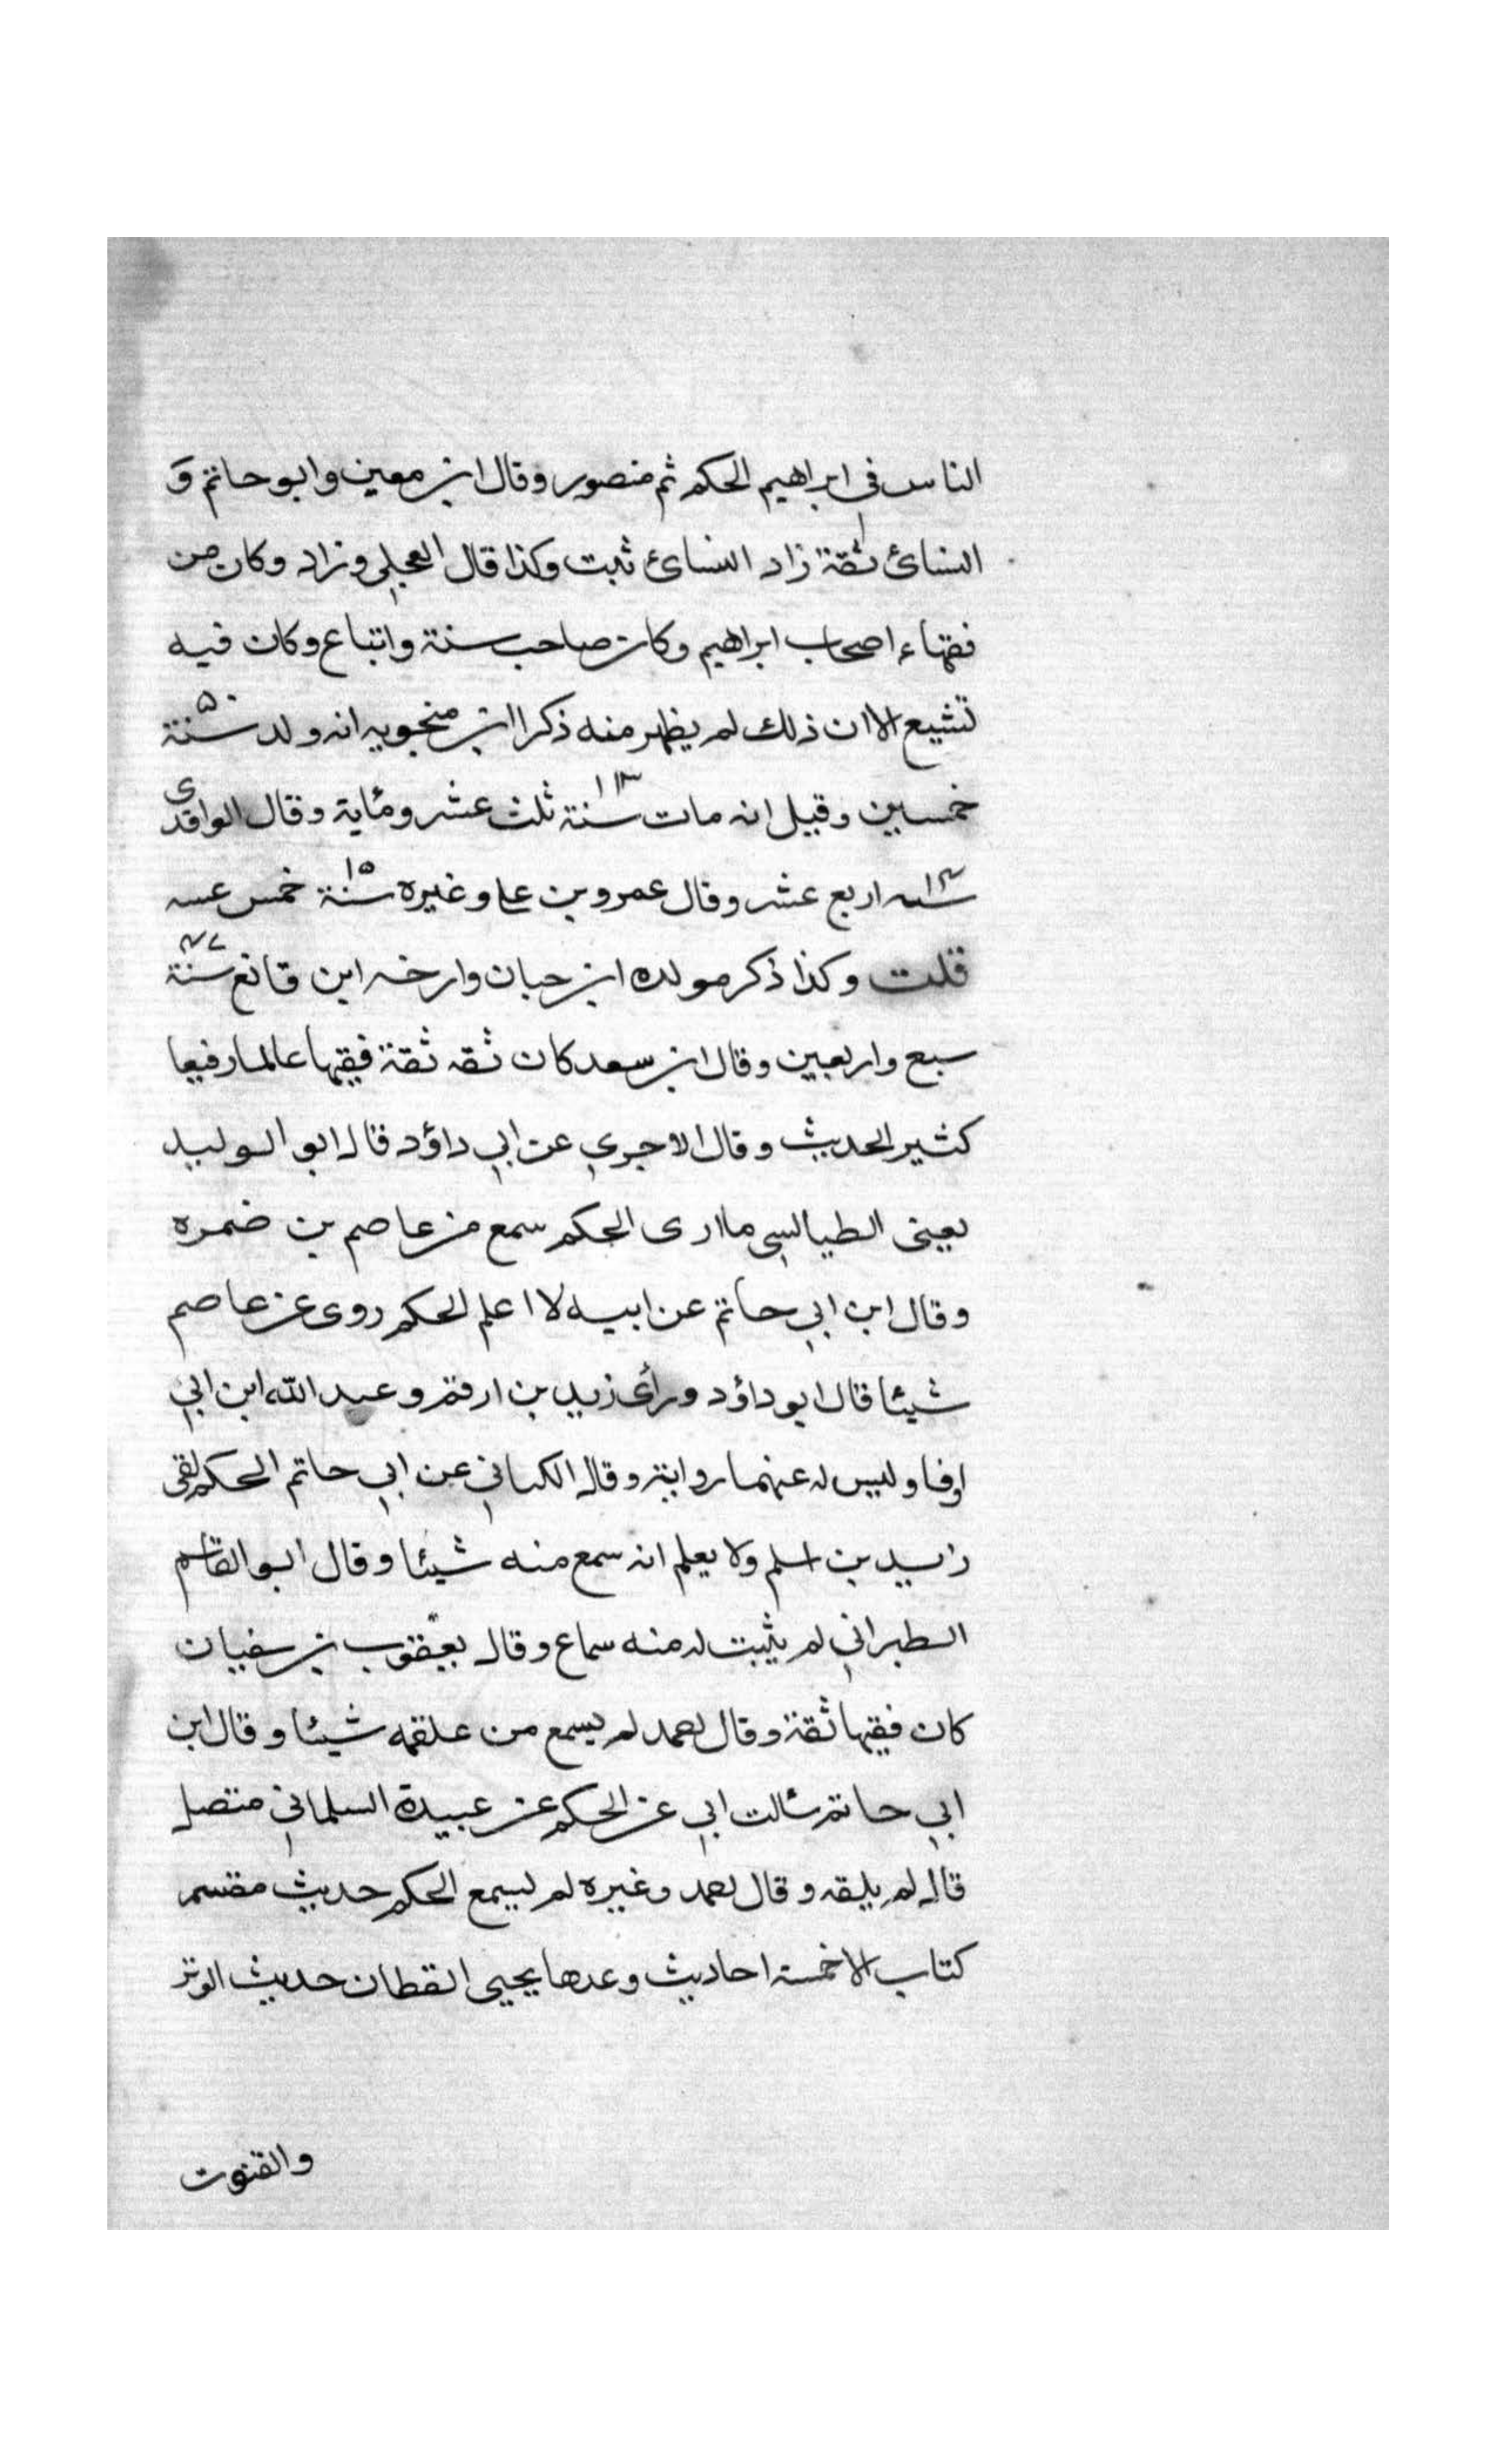 الناس فى ابراهيم الحكم ثم منصور وقال ابن معين وابو حاتم وَ
النسائ ثقة زاد النسائ ثبت وكذا قال العجلي وزاد وكان من
فقهاء اصحاب ابراهيم وكان صاحب سنة واتباع وكان فيه
تشيع الا ان ذلك لم يظهر منه ذكر ابن منجويه انه ولد سنة ۵۰
خمسين وقيل انه مات سنة ۱۱۳ ثلث عشر ومئاية وقال الواقدى
سنه ۱۱۴ اربع عشر وقال عمرو بن على وغيره سنة ۱۵ خمس عسه
قلت وكذا ذكر مولده ابن حبان وارخه ابن قانع سنة ۴۷
سبع واربعين وقال ابن سعد كان ثقه ثقة فقيها عالما رفيعا
كثير الحديث وقال الاجري عن ابي داؤد قال ابو الوليد
يعنى الطيالسى ما ارى الحكم سمع من عاصم بن ضمره
وقال ابن ابي حاتم عن ابيه لا اعلم الحكم روى عن عاصم
شيئا قال ابو داؤد ورأى زيد بن ارقم وعبد الله ابن ابي
اوفا وليس له عنهما رواية وقال الكناني عن ابي حاتم الحكم لقى
زيد بن اسلم ولا يعلم انه سمع منه شيئا وقال ابو القاسم
الطبراني لم يثبت له منه سماع وقال يعقوب بن سفيان
كان فقيها ثقة وقال احمد لم يسمع من علقمه شيئا وقال ابن
ابي حاتم سئالت ابي عن الحكم عن عبيدة السلماني متصل
قال لم يلقه وقال احمد وغيره لم يسمع الحكم حديث مقسم
كتاب الا خمسة احاديث وعدها يحيى القطان حديث الوتر
والقنوت